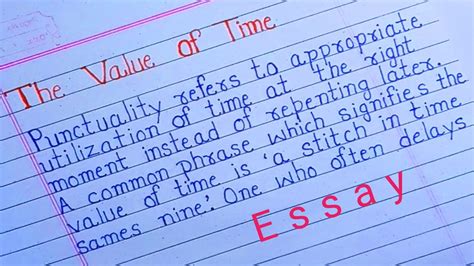 The Value of Time
Punctuality refers to appropriate
utilization of time at the right
moment instead of repenting later.
A common phrase which signifies the
value of time is 'a stitch in time
sames nine'. One who often delays
Essay